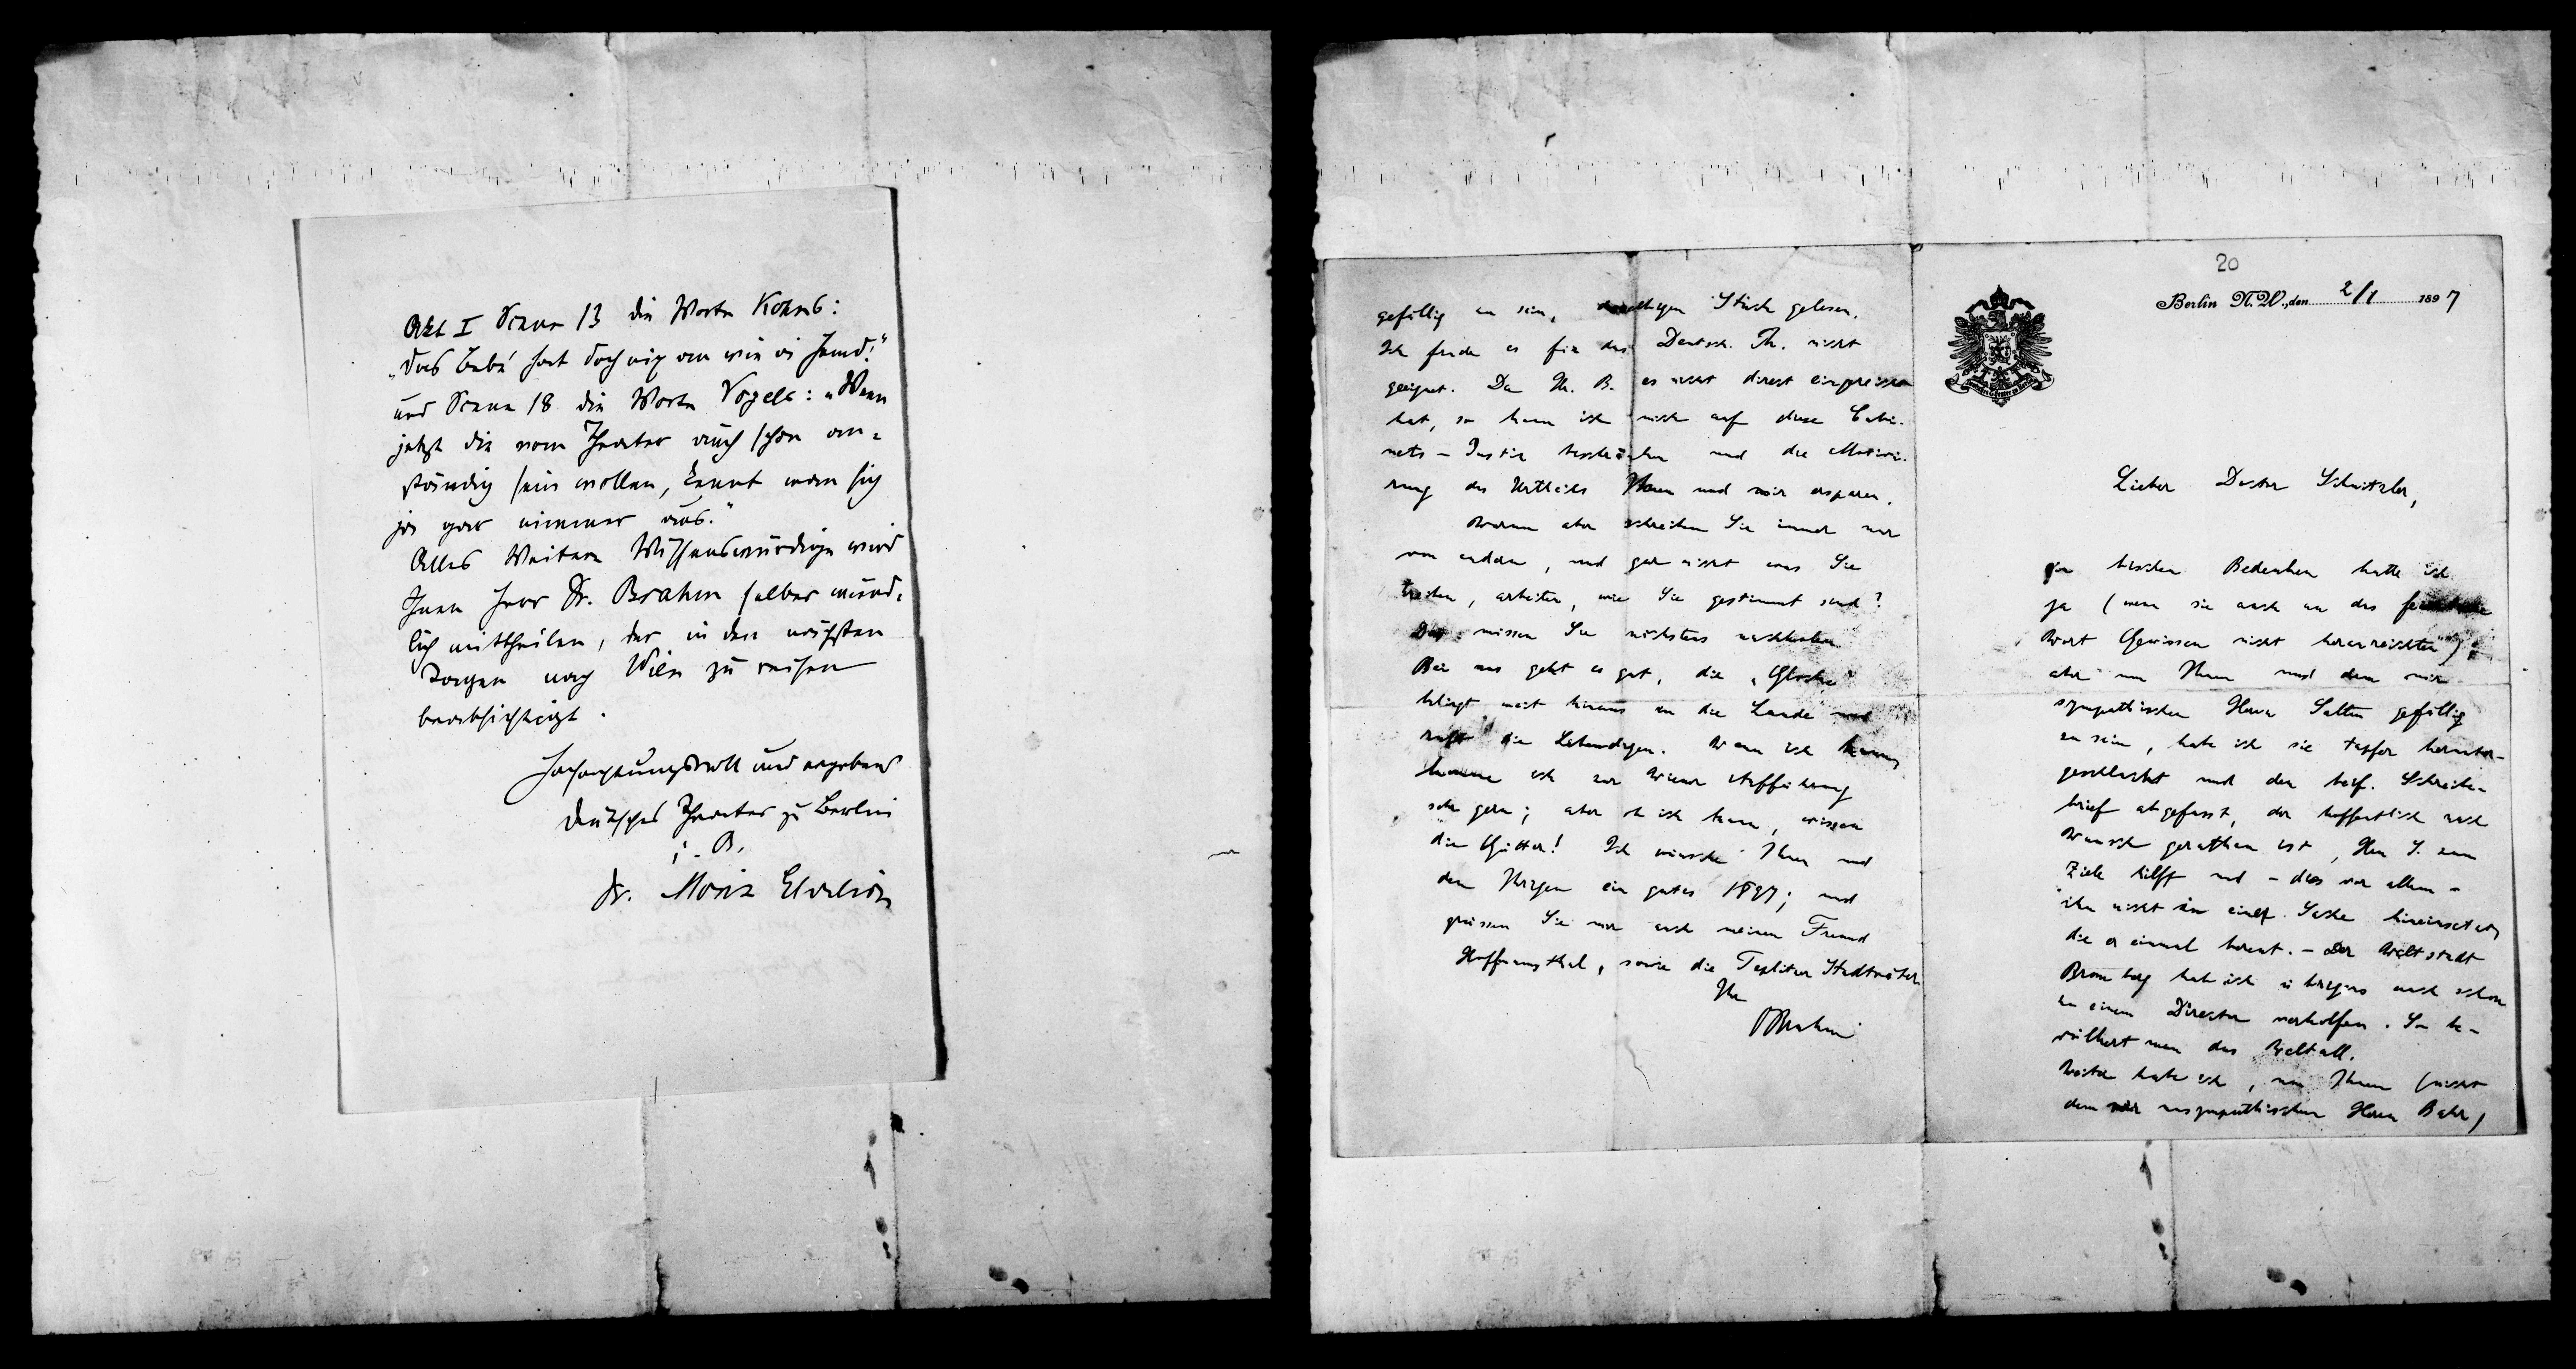 Akt I Scene 13 die Worte Kohns:
„Das Bubi hat doch nix an wie a Hemd!"
und Scene 18 die Worte Vogels: „Wenn
jetzt die vom Theater auch schon an-
ständig sein wollen, kennt man sich
ja gar nimmer aus."
Alles Weitere Wissenswürdige wird
Ihnen Herr Dr. Brahm selber münd-
lich mittheilen, der in den nächsten
Tagen nach Wien zu reisen
beabsichtigt.
Hochachtungsvoll und ergebens
Deutsches Theater zu Berlin
Dr. Moriz Ehrlich
gefällig zu sein, Stück gelesen.
Ich finde es für das Deutsch. Th. nicht
geeignet. Da H. B. es nicht direct eingereicht
hat, so kann ich mich auf diese Cabi-
nets-Justiz beschränken und die Motivi-
rung des Urtheils Ihnen und mir ersparen.
Warum aber schreiben Sie immer nur
von andern, und gar nicht was Sie
treiben, arbeiten, wie Sie gestimmt sind?
Das müssen Sie nächstens nachholen.
Bei uns geht es gut, die „Glocke"
klingt weit hinaus in die Lande und
ruft die Lebendigen. Wenn ich kann,
komme ich zur Wiener Aufführung
sehr gern; aber ob ich kann, wissen
die Götter! Ich wünsche Ihnen und
den Ihrigen ein gutes 1897; und
grüssen Sie mir auch meinen Freund
Hoffmansthal, sowie die Teplitzer Stadträthe.
Ihr
OBrahm
20
Berlin N.W., den 2/1 1897
Lieber Doctor Schnitzler,
ein bischen Bedenken hatte ich
ja (wenn sie auch an das
Wort Gewissen nicht heranreichten);
aber um Ihnen und dem mir
sympathischen Herrn Salten gefällig
zu sein, habe ich sie tapfer herunter-
geschluckt und den beif. Schreibe-
brief abgefasst, der hoffentlich nach
Wunsch gerathen ist, Herrn S. zum
Ziele hilft und – dies vor allem –
ihn nicht in eine Sache hineinsetzt,
die er einmal bereut. – Der Weltstadt
Bromberg hab ich übrigens auch schon
zu einem Director verholfen. So be-
völkert man das Weltall.
Weiter habe ich, um Ihnen (nicht
dem mir unsympathischen Herrn Bahr)